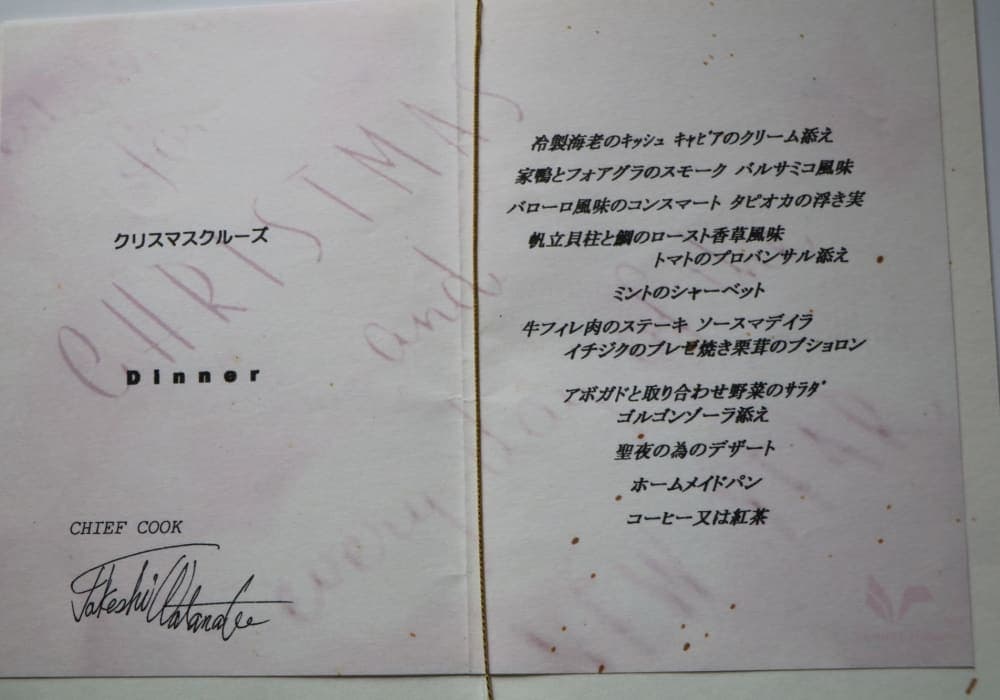 クリスマスクルーズ
Dinner
CHIEF COOK
Takeshi Watanabe
CHRISTMAS
and
every
冷製海老のキッシュ キャビアのクリーム添え
家鴨とフォアグラのスモーク バルサミコ風味
バローロ風味のコンスマート タピオカの浮き実
帆立貝柱と鯛のロースト香草風味
トマトのプロバンサル添え
ミントのシャーベット
牛フィレ肉のステーキ ソースマデイラ
イチジクのブレゼ焼き栗茸のブショロン
アボガドと取り合わせ野菜のサラダ
ゴルゴンゾーラ添え
聖夜の為のデザート
ホームメイドパン
コーヒー又は紅茶